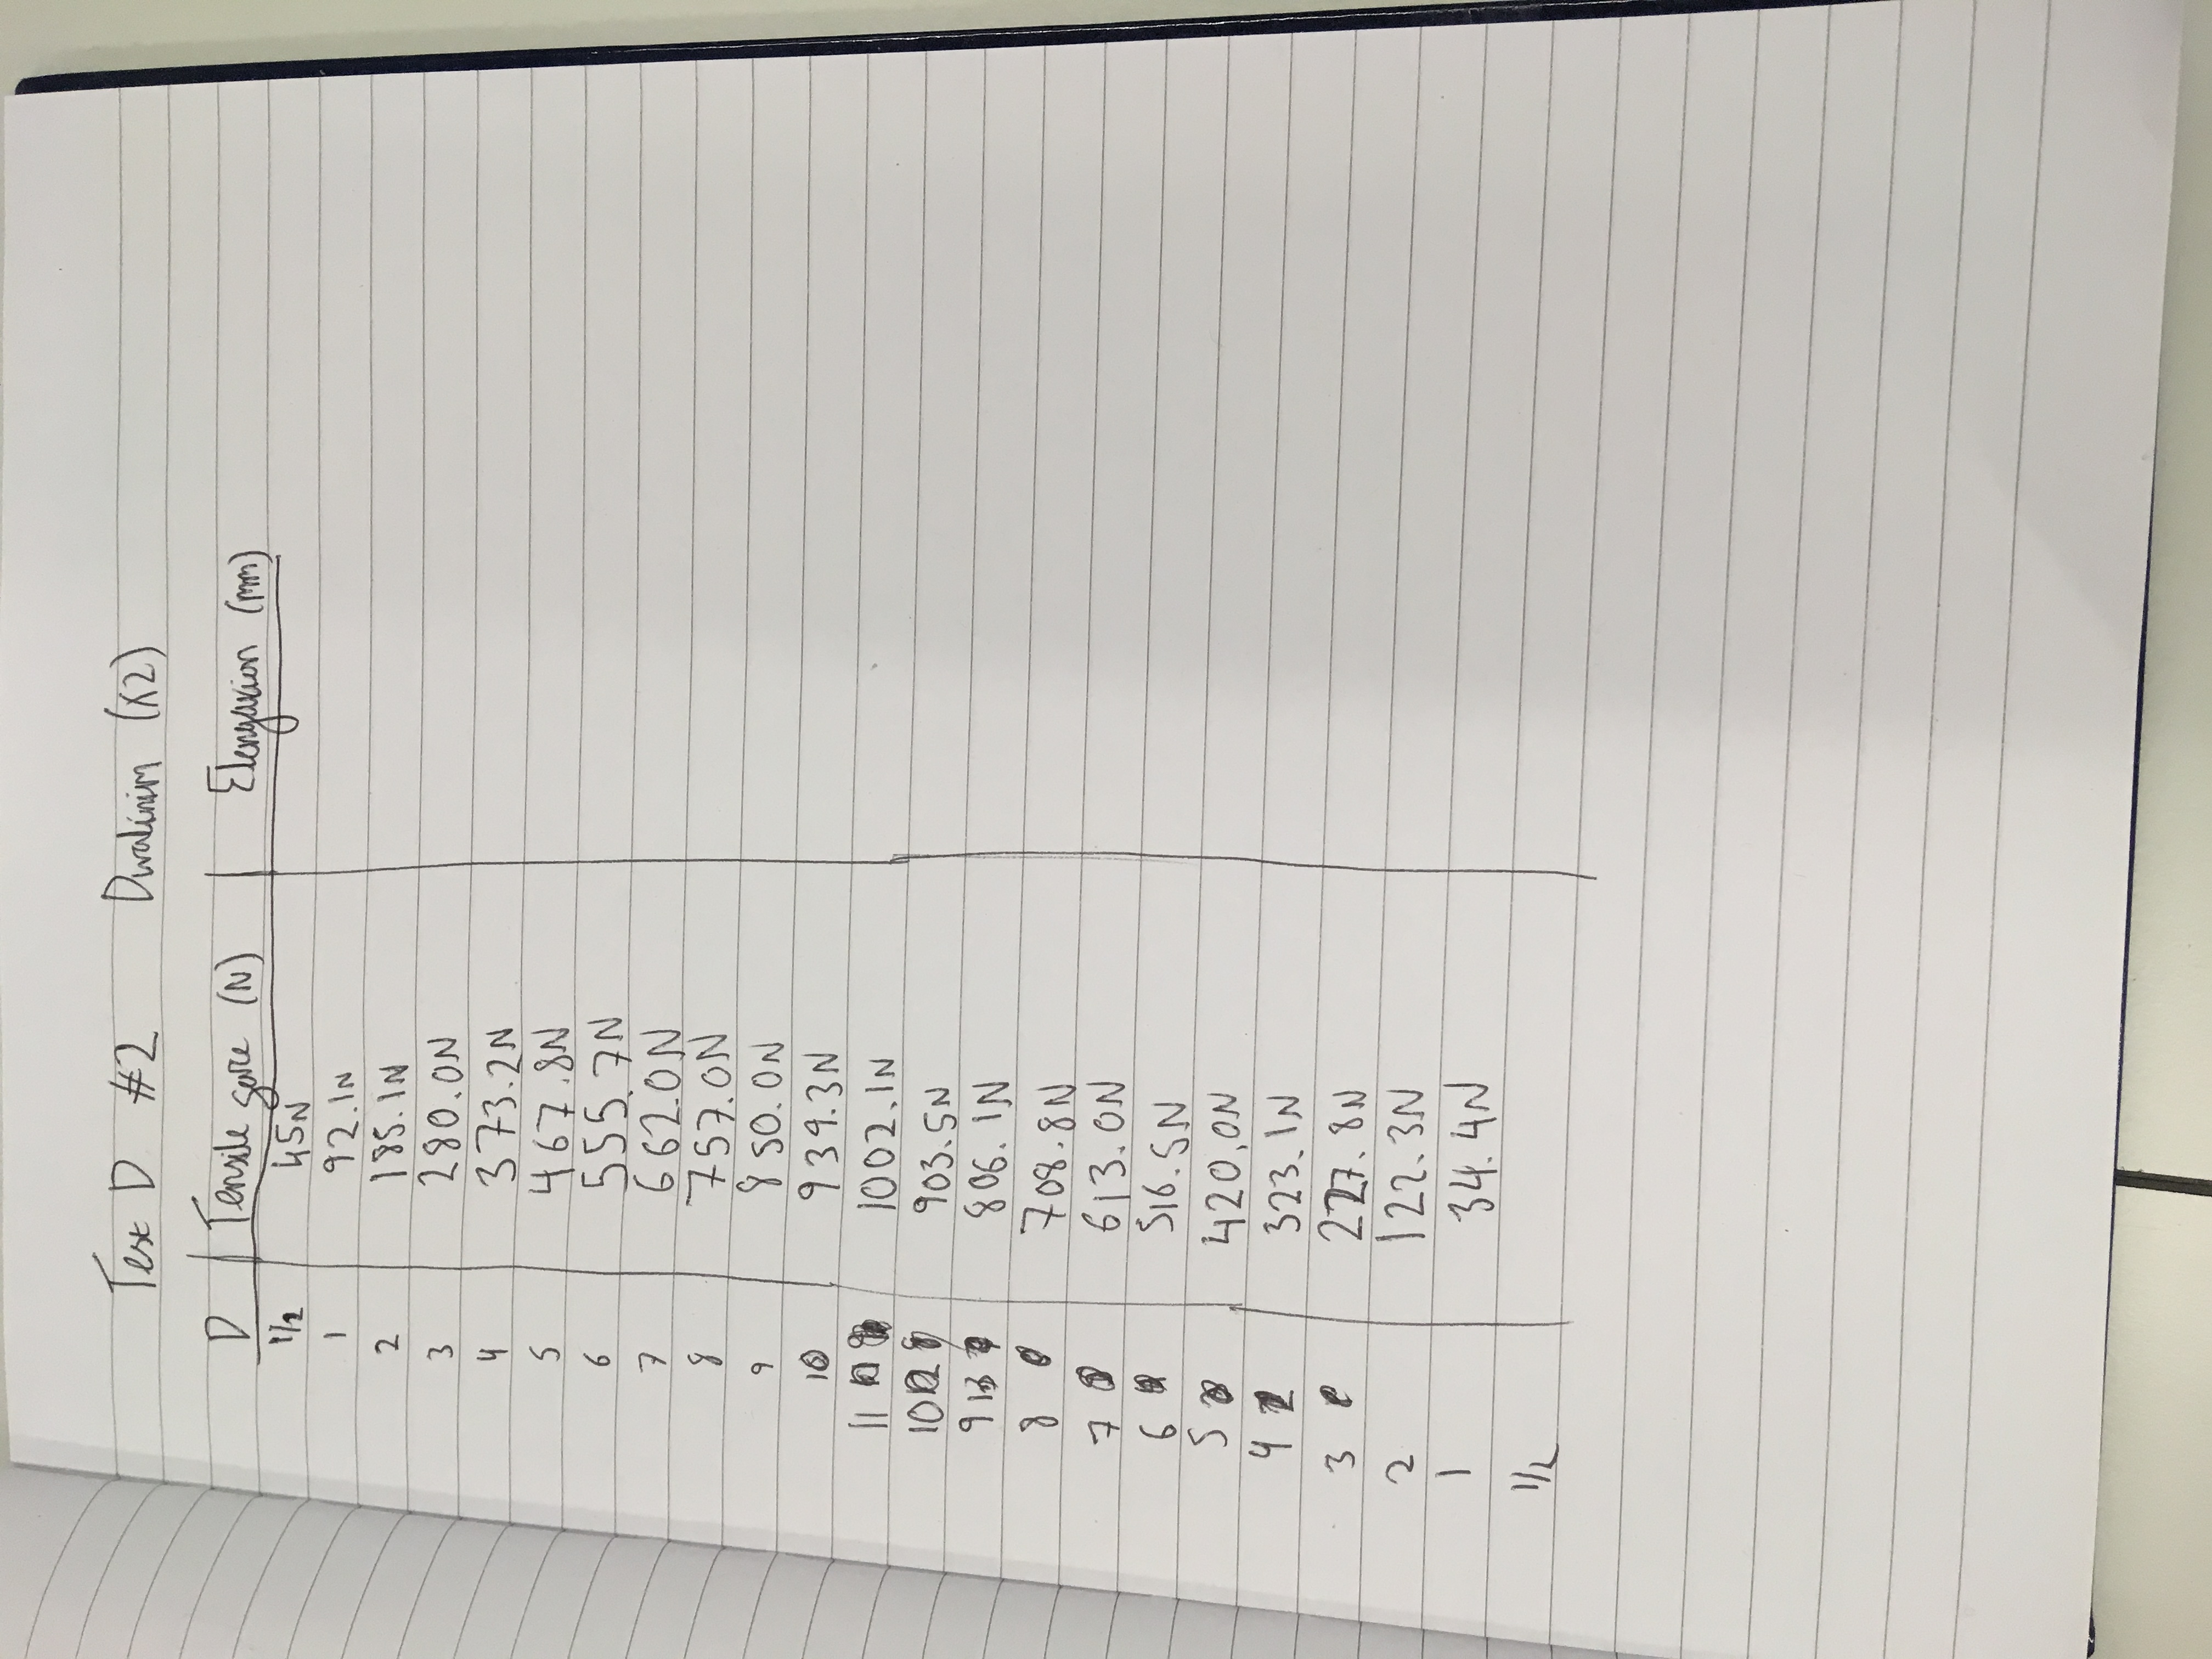 Test D #2 Duralinim (x2)
D Tensile force (N) Elongation (mm)
1/2 45N
1 92.1N
2 185.1N
3 280.0N
4 373.2N
5 467.8N
6 555.7N
7 662.0N
8 757.0N
9 850.0N
10 939.3N
11 1002.1N
10 903.5N
9 806.1N
8 708.8N
7 613.0N
6 516.5N
5 420.0N
4 323.1N
3 227.8N
2 122.3N
1 34.4N
1/2